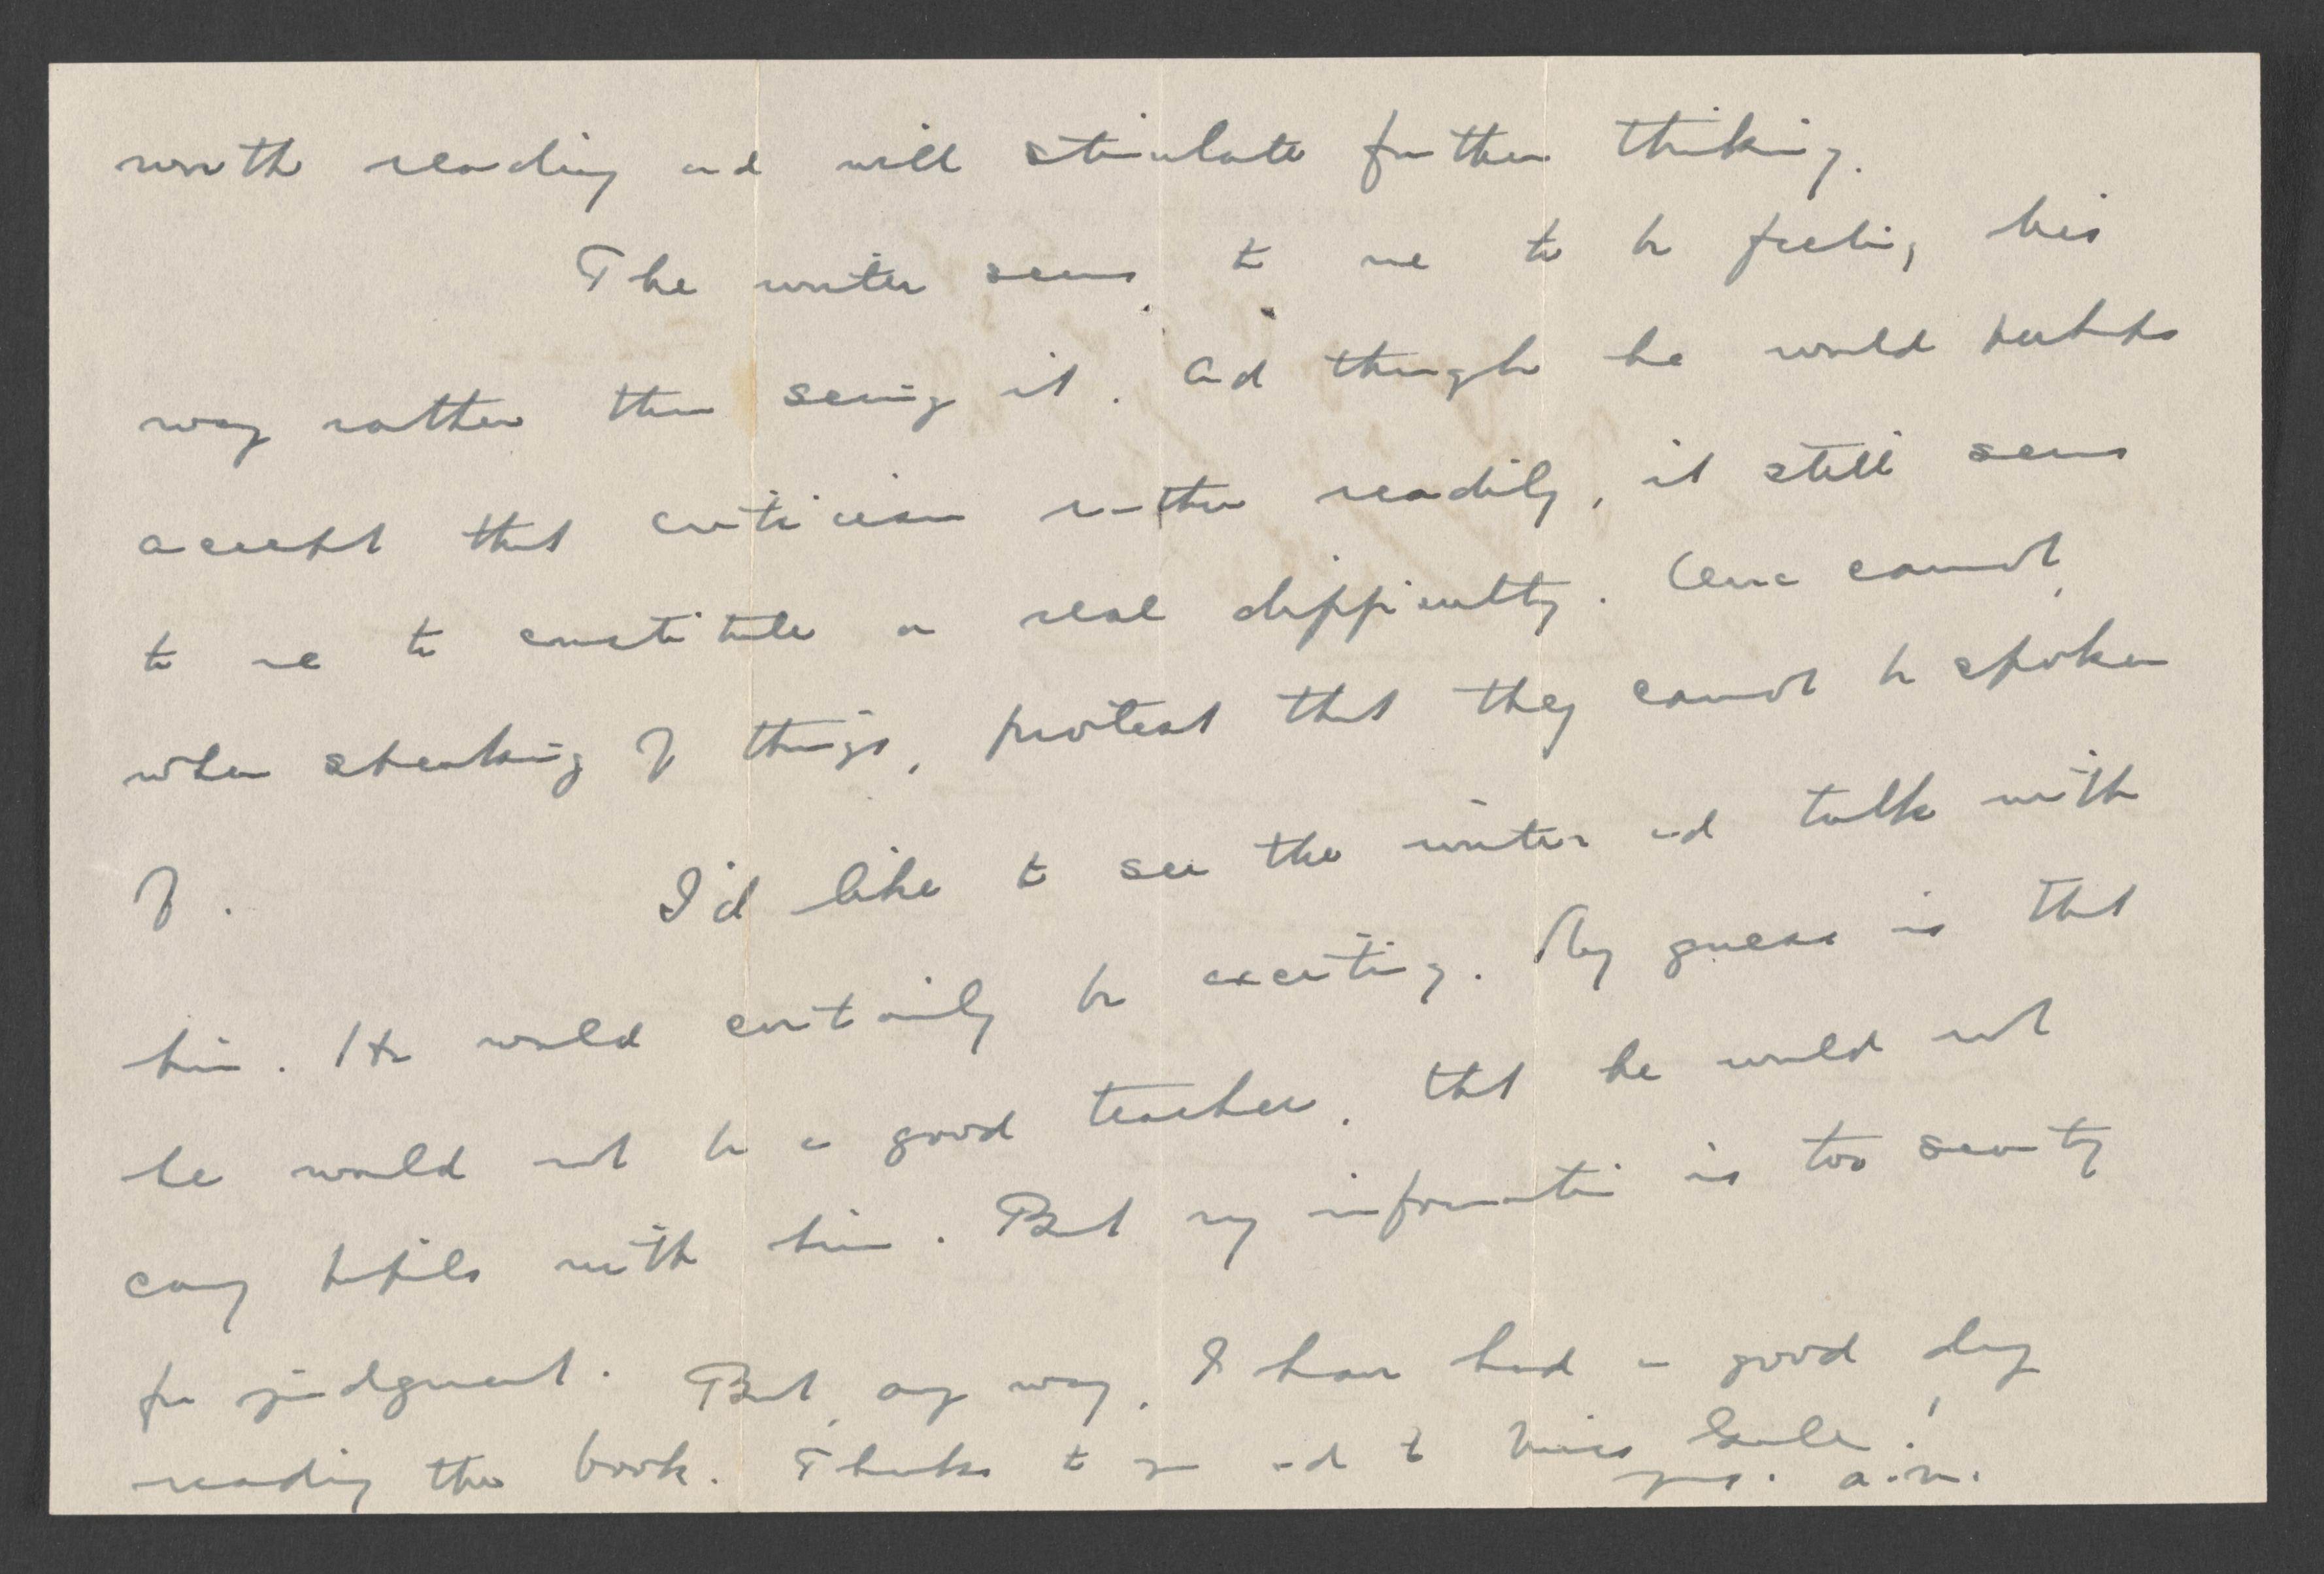 worth reading and will stimulate further thinking.
The writer seems to me to be feeling his
way rather than seeing it. And though he would perhaps
accept that criticism rather readily, it still seems
to me to constitute a real difficulty. One cannot,
when speaking of things, protest that they cannot be spoken
of. I'd like to see the writer and talk with
him. He would certainly be exciting. My guess is that
he would not be a good teacher, that he would not
carry pupils with him. But my information is too scanty
for judgment. But, any way, I have had a good day
reading the book. Thanks to you and to Miss Gale!
yrs. a.m.